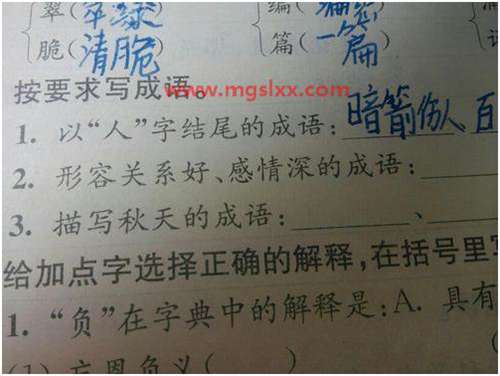 翠(翠绿 编(
脆(清脆) 篇(一篇)
www.mgslxx.com
按要求写成语。
1. 以“人”字结尾的成语:暗箭伤人、百
2. 形容关系好、感情深的成语:
3. 描写秋天的成语: 、
给加点字选择正确的解释,在括号里写
1. “负”在字典中的解释是:A. 具有
(1) 忘恩负义( ) (